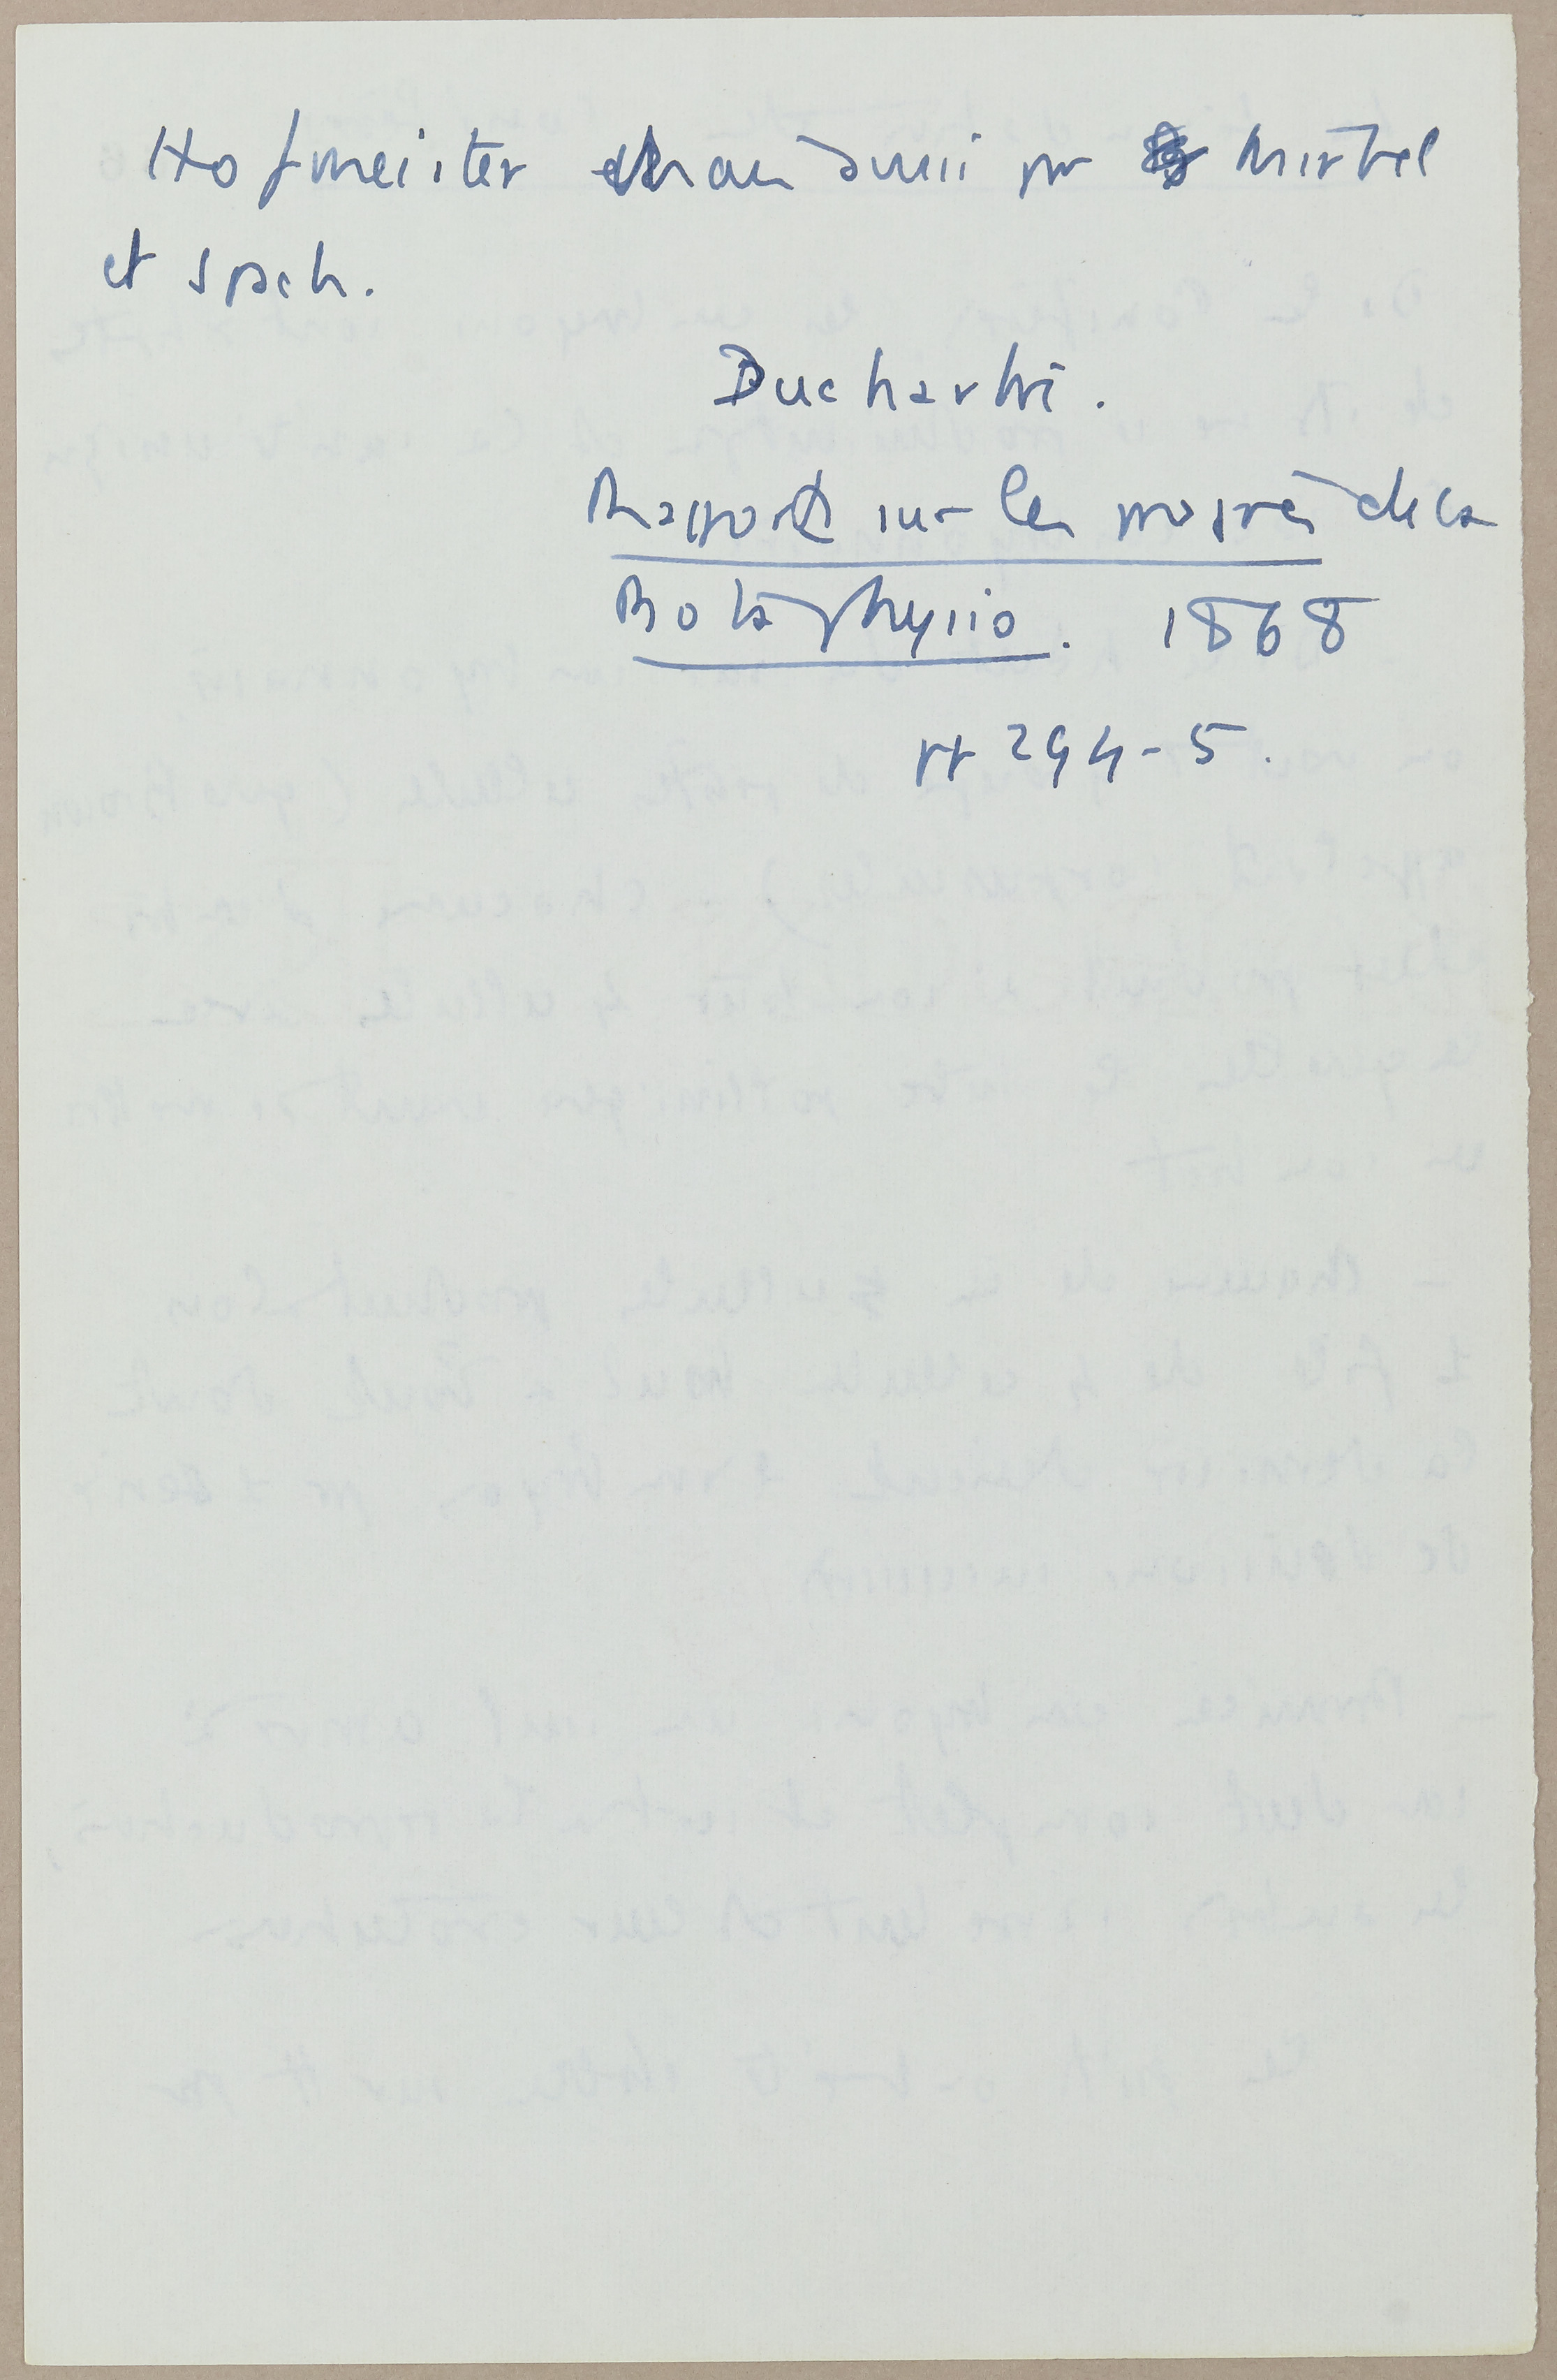 Hofmeister mais aussi par Mirbel
et Spach.
Duchartre.
Rapport sur les progrès de la
Bota physio. 1868
pp 294-5.